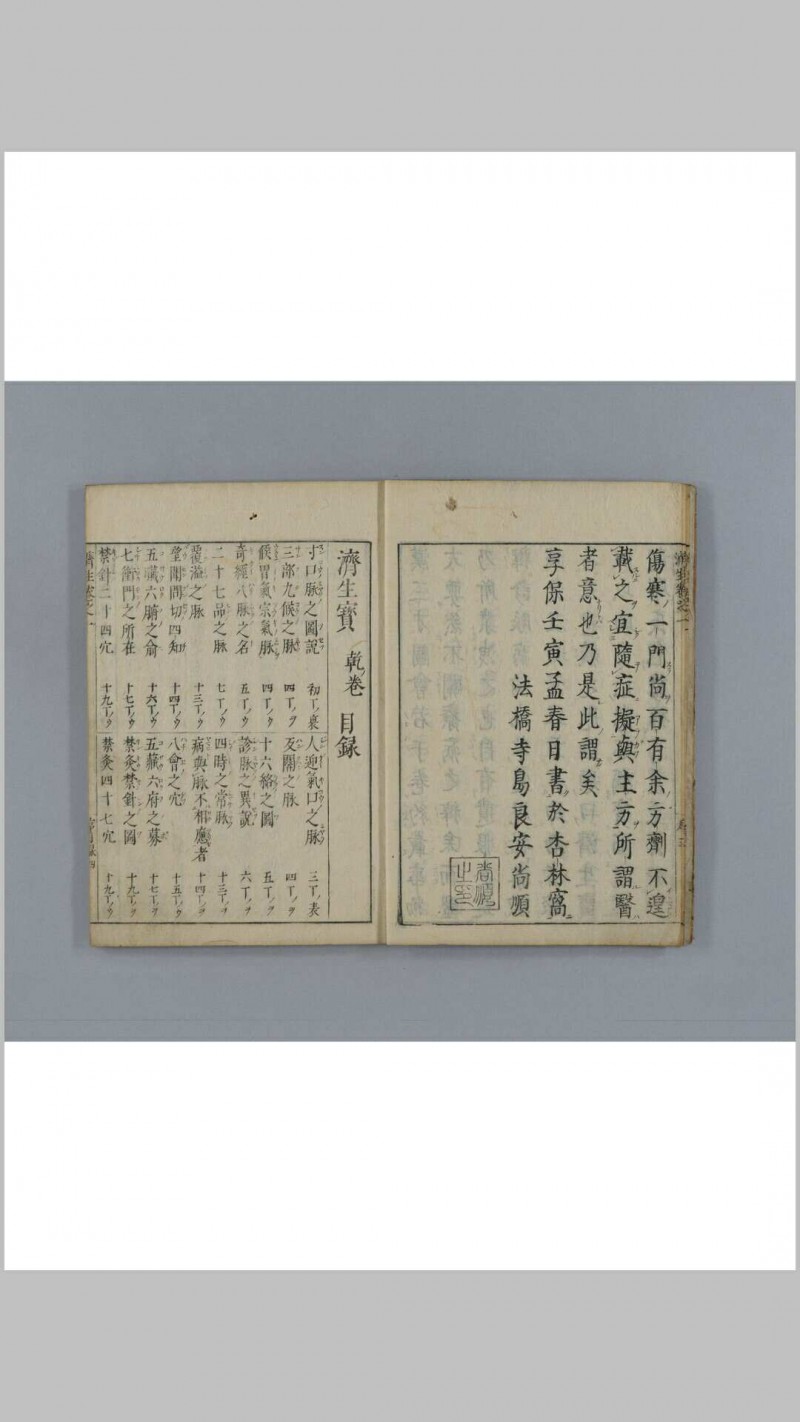 傷寒一門尚百有余方劑不遑
載之宜隨症擬與主方所謂醫
者意也乃是此謂矣
享保壬寅孟春日書於杏林窩
法橋寺島良安尚順
濟生寶 乾卷 目録
寸口脉之圖説 初丁ノ裏
三部九候之脉 四丁ノヲ
候胃氣宗氣脉 四丁ノウ
奇經八脉之名 五丁ノウ
二十七品之脉 七丁ノウ
覆溢之脉 十三丁ノウ
望聞問切四知 十四丁ノウ
五臟六腑之俞 十六丁ノウ
七衝門之所在 十七丁ノウ
禁針二十四穴 十九丁ノウ
人迎氣口之脉 三丁ノ表
反關之脉 四丁ノヲ
十六絡之圖 五丁ノヲ
診脉之異説 六丁ノヲ
四時之常脉 十三丁ノヲ
病與脉不相應者 十四丁ノヲ
八會之穴 十五丁ノウ
五臟六府之募 十七丁ノヲ
禁灸禁針之圖 十九丁ノヲ
禁灸四十七穴 十九丁ノウ